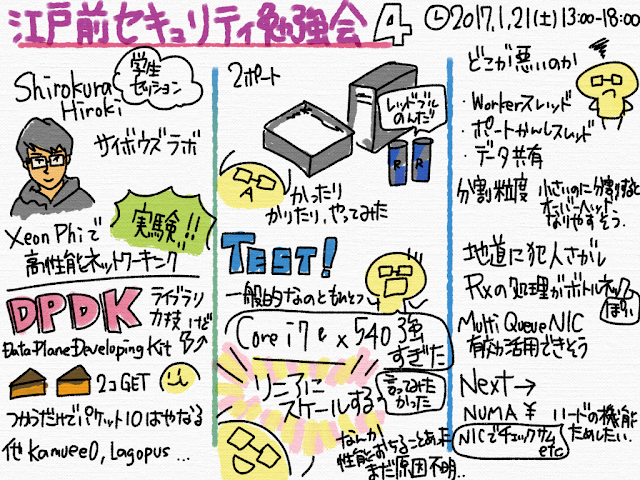 江戸前セキュリティ勉強会 4
2017,1,21(土)13:00-18:00
Shirokura
Hiroki
学生
セッション
サイボウズラボ
実験!!
Xeon Phiで
高性能ネットワーキング
DPDK
ライブラリ
力技
けど
Data Plane Developing Kit
2コGET
つかうだけでパケットIOはやなる
他 Kamuee0, Lagopus ...
2ポート
レッドブル
のんだ
R
R
A
かったり
かりたり、やってみた
TEST!
一般的なのともいっこ
Core i7 と x540 強
すぎた
リニアに
スケールするっ
言ってみた
かった
なんか
性能おちることあった
まだ原因不明...
どこが悪いのか
・Workerスレッド
・ポートかんしスレッド
・データ共有
分割粒度
小さいのに分割すると
オーバーヘッド
なりやすそう.
地道に犯人さがし
Rxの処理がボトルネック
ぽい
Multi Queue NIC
有効活用できそう
Next→
NUMA ¥
NICでチェックサム
etc
ハードの機能
ためしたい.